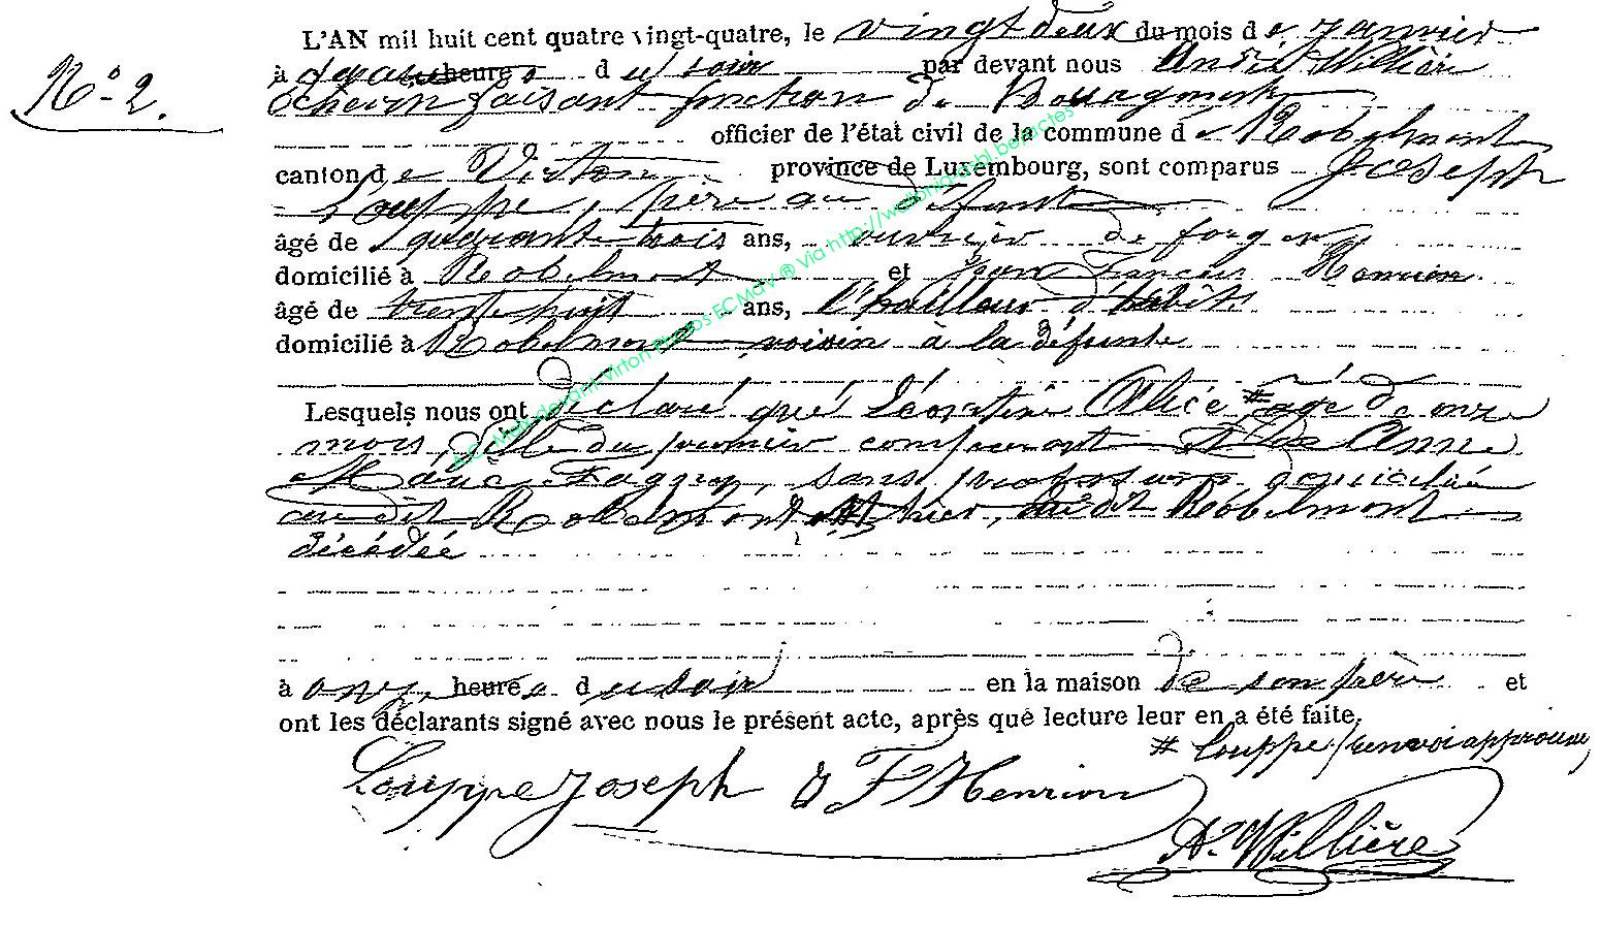 L'AN mil huit cent quatre vingt-quatre, le vingt deux du mois de Janvier
N° 2.
à heures du soir par devant nous André Willière
Echevin faisant fonction de Bourgmestre
officier de l'état civil de la commune de Robelmont
canton de Virton province de Luxembourg, sont comparus Joseph
Louppe, père au défunt
âgé de quarante trois ans, ouvrier de forges
domicilié à Robelmont et Jean François Henrion
âgé de trente huit ans, tailleur d'habits
domicilié à Robelmont voisin à la défunte
Lesquels nous ont déclaré que Léontine Alice # âgé de onze
mois, fille du premier comparant et de Anne
Marie Faggny, sans profession domiciliée
au dit Robelmont hier, au dit Robelmont
décédée
à onze heures du soir en la maison de son père et
ont les déclarants signé avec nous le présent acte, après que lecture leur en a été faite.
# Louppe / renvoi approuvé
Louppe Joseph J F Henrion
A. Willière
via http://